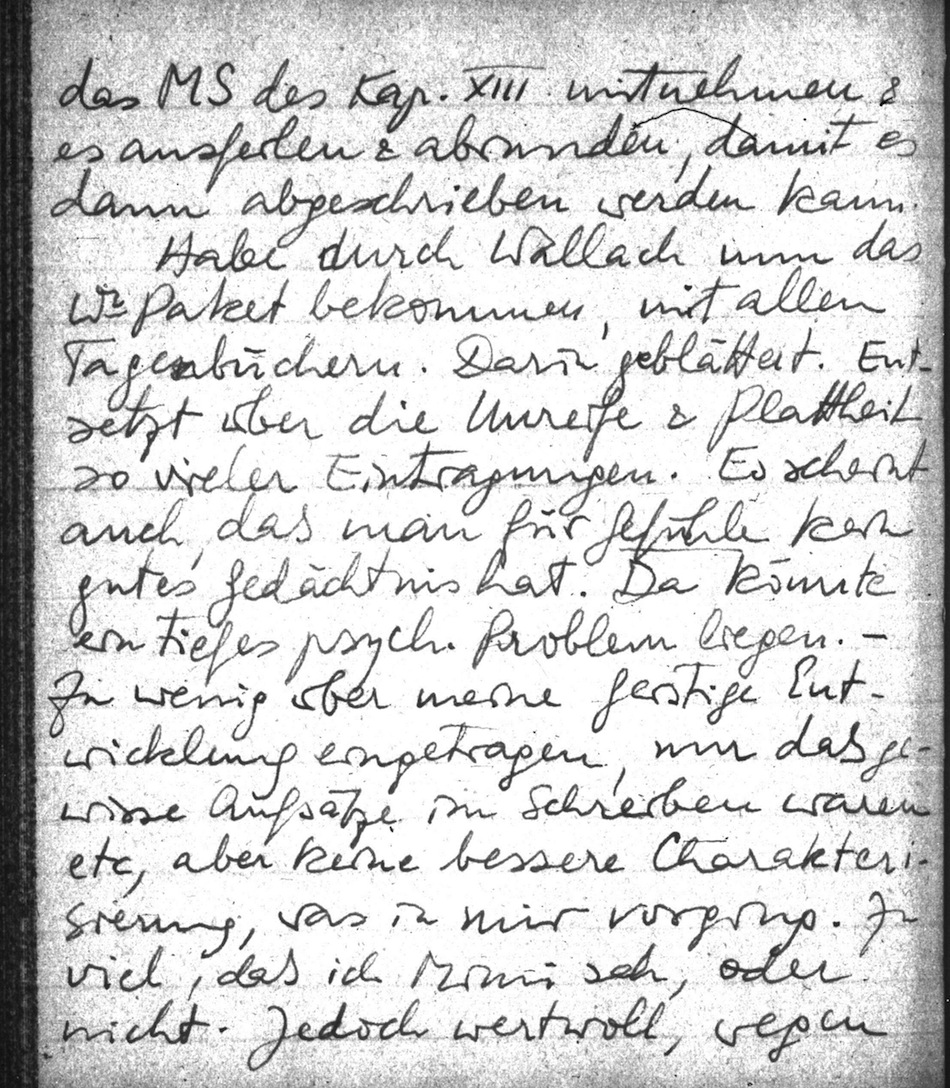 das MS des Kap. XIII mitnehmen &
es ausfeilen & abrunden, damit es
dann abgeschrieben werden kann.
Habe durch Wallach nun das
Wr Paket bekommen, mit allen
Tagenbüchern. Darin geblättert. Ent-
setzt über die Unreife & Plattheit
so vieler Eintragungen. Es scheint
auch, daß man für Gefühle kein
gutes Gedächtnis hat. Da könnte
ein tiefes psych. Problem liegen. –
Zu wenig über meine geistige Ent-
wicklung eingetragen, nur daß ge-
wisse Aufsätze im Schreiben waren
etc, aber keine bessere Charakteri-
sierung, was in mir vorging. Zu
viel, daß ich Mimi sah, oder
nicht. Jedoch wertvoll, wegen